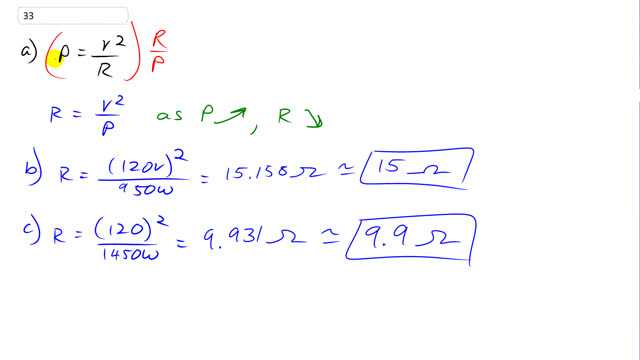 33
a) (P = V²/R) R/P
R = V²/P as P ↗, R ↘
b) R = (120V)²/950W = 15.158 Ω ≃ 15 Ω
c) R = (120)²/1450W = 9.931 Ω ≃ 9.9 Ω